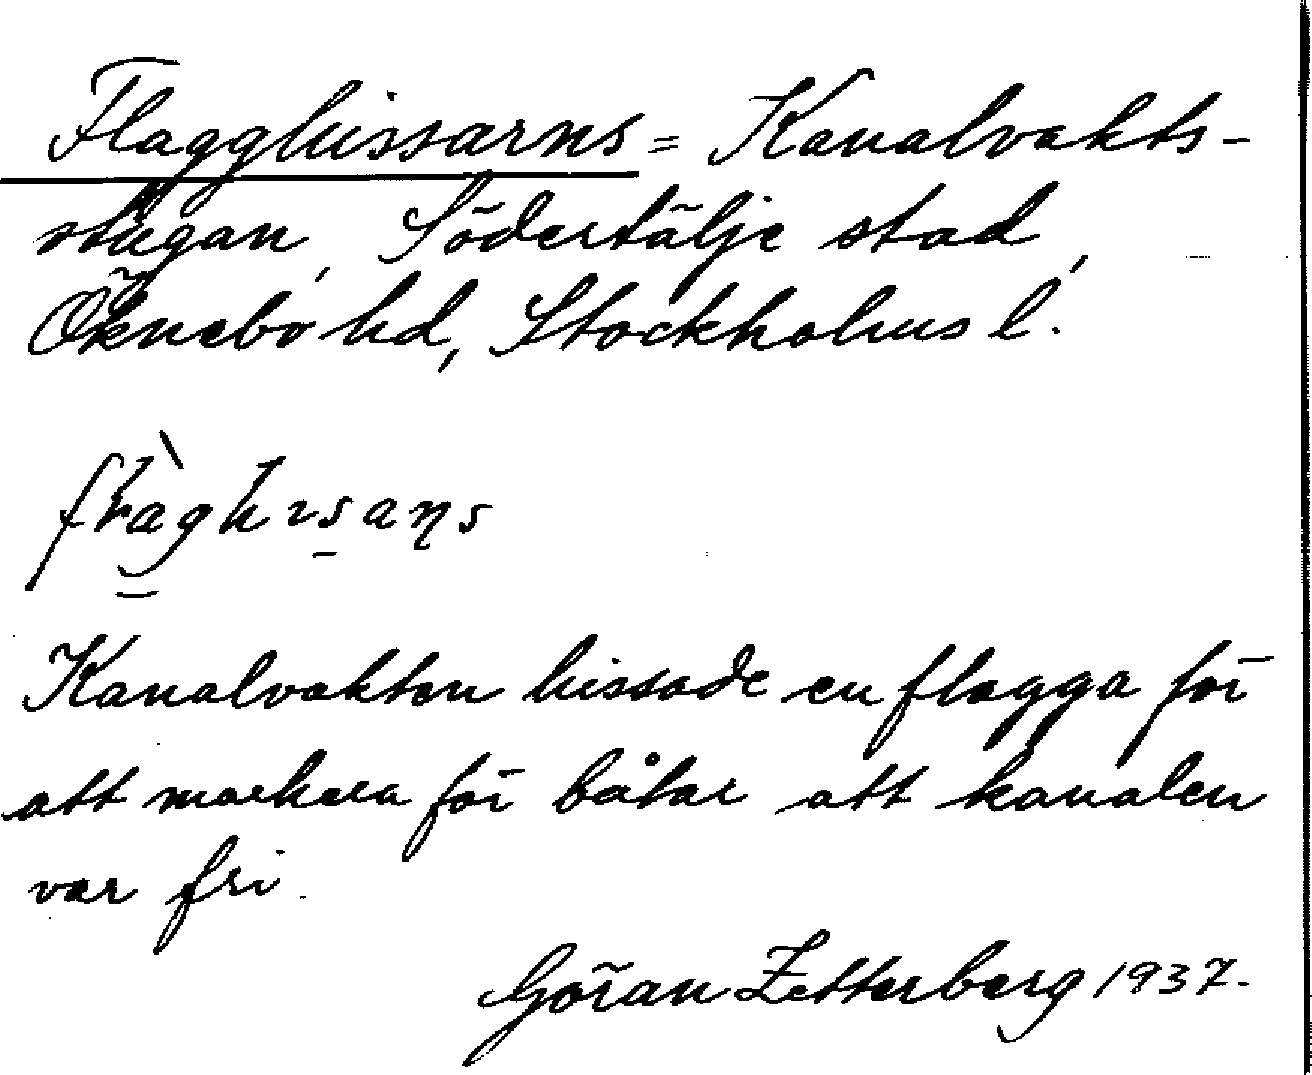 Flagghissarns = Kanalvakts-
stugan, Södertälje stad,
Öknebo hd, Stockholms l.
Kanalvakten hissade en flagga för
att markera för båtar att kanalen
var fri.
Göran Zetterberg 1937.